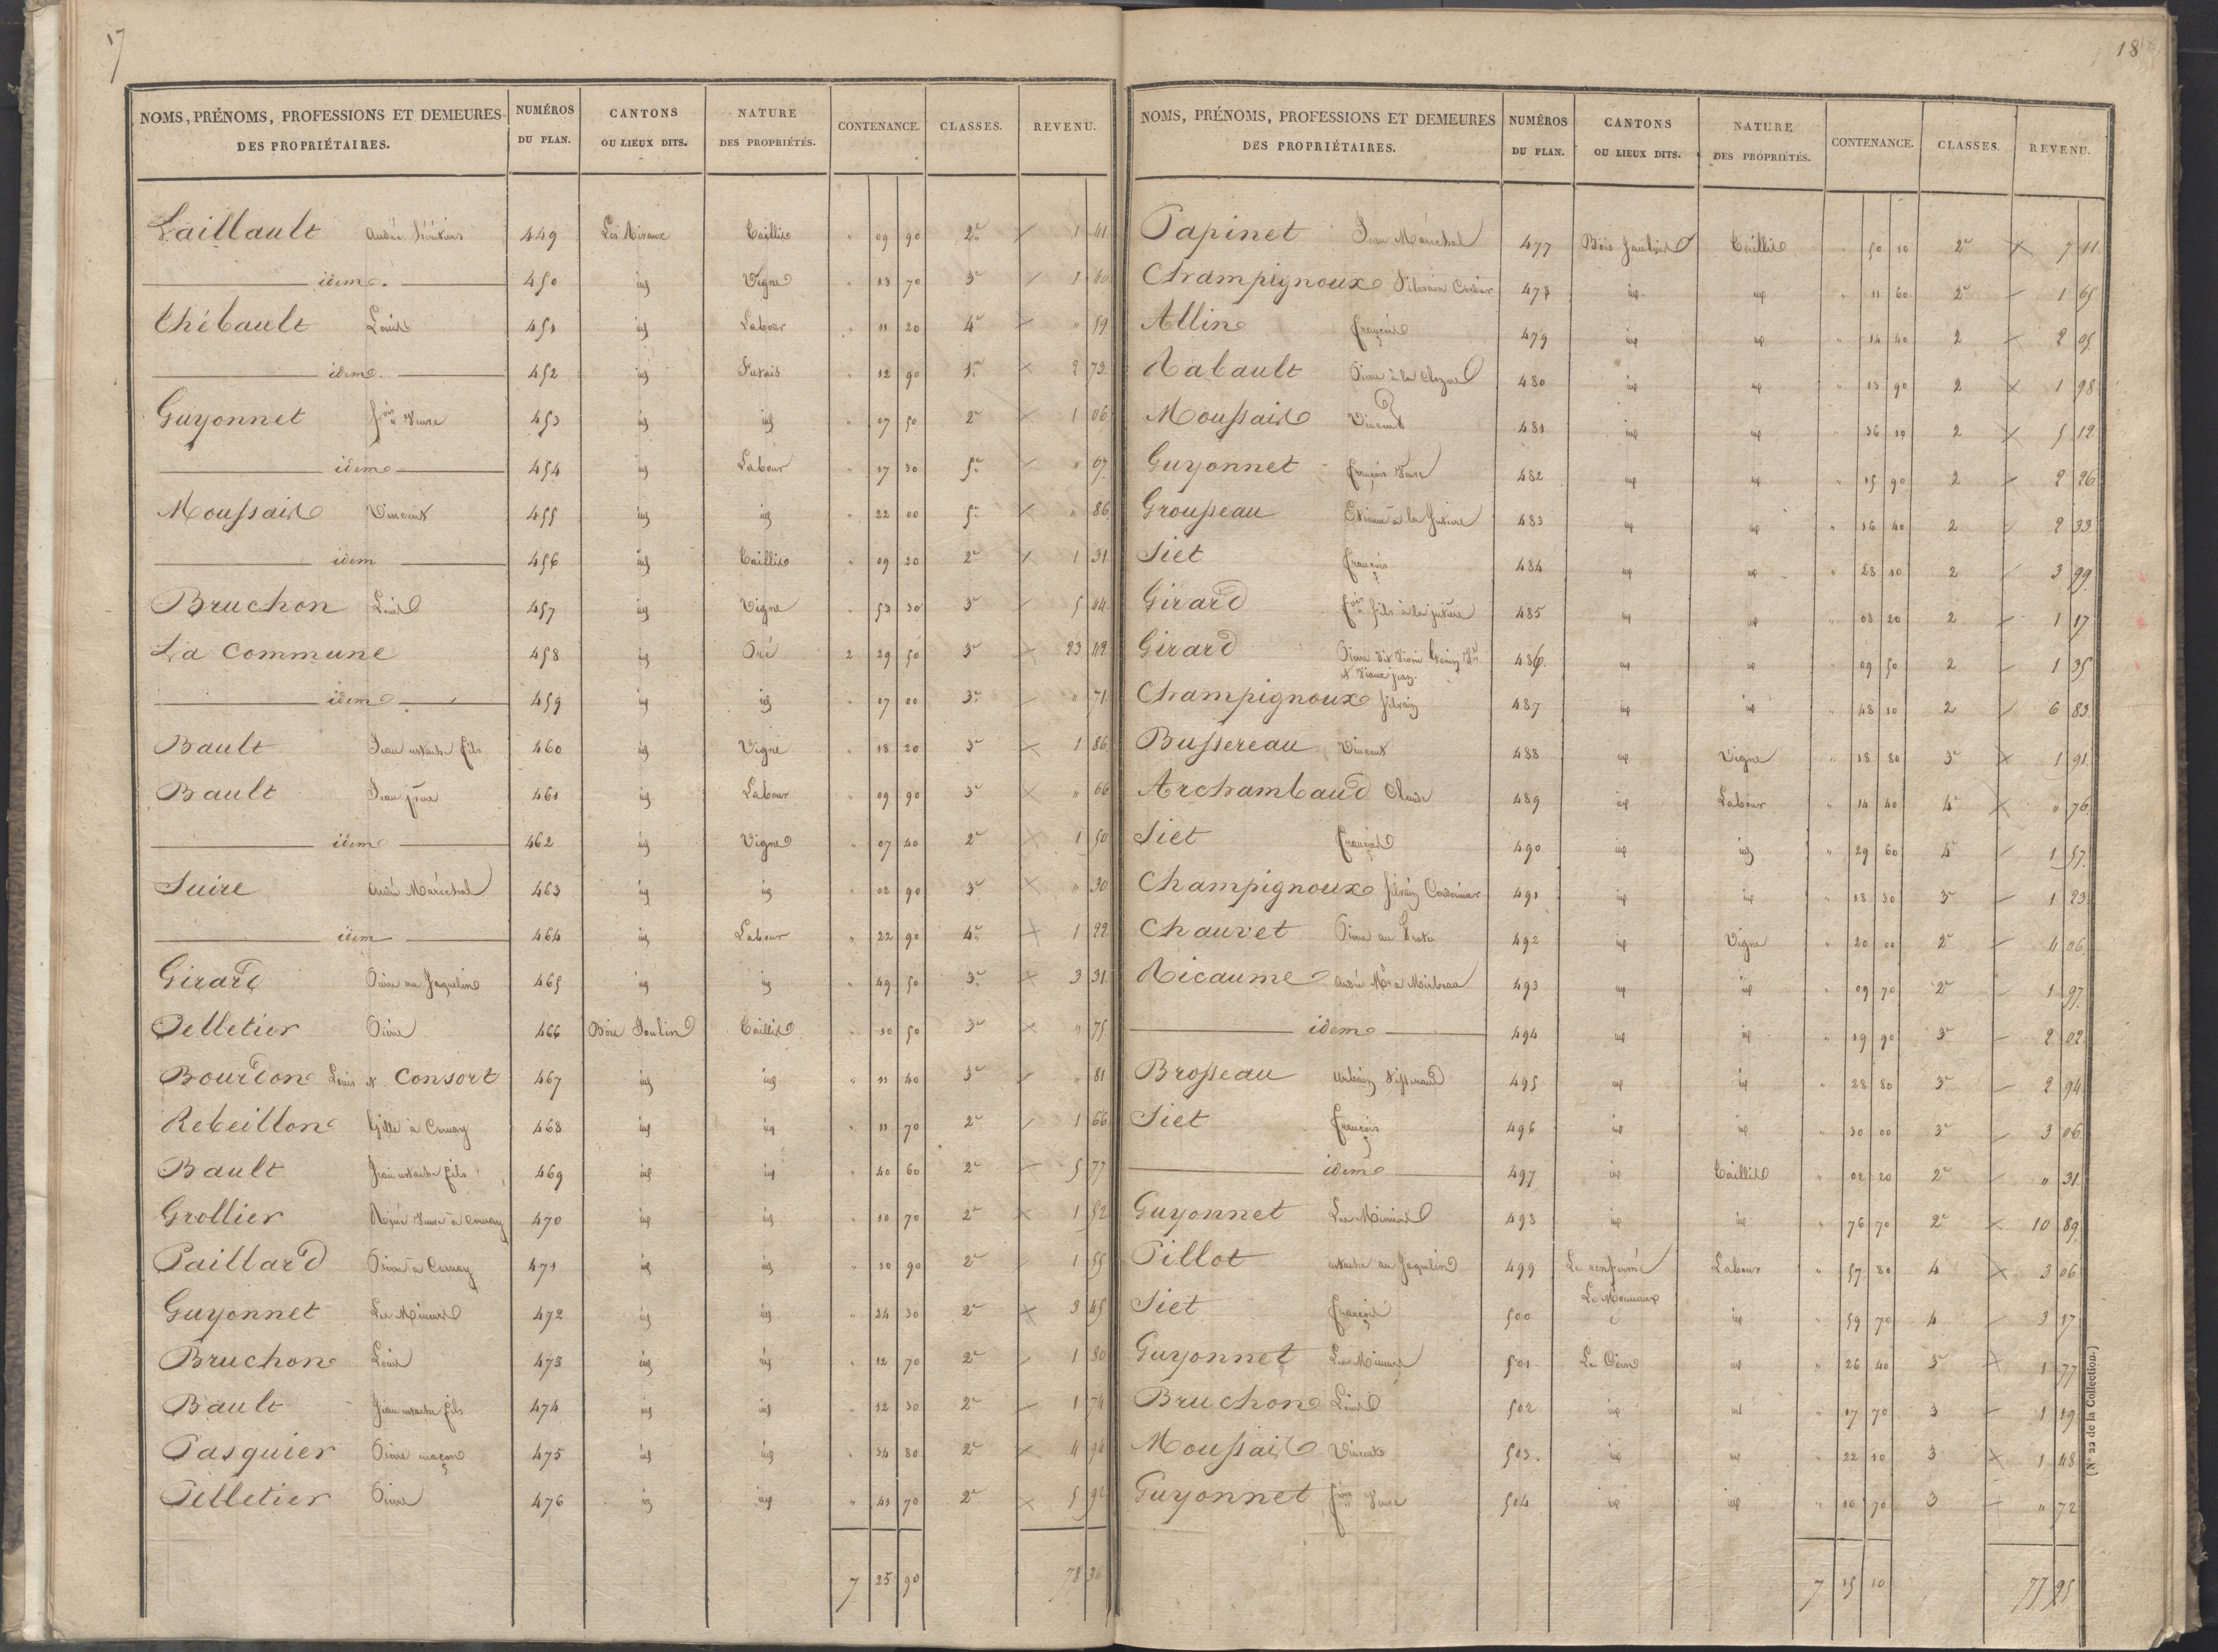 17
NOMS, PRÉNOMS, PROFESSIONS ET DEMEURES DES PROPRIÉTAIRES. NUMÉROS DU PLAN. CANTONS OU LIEUX DITS. NATURE DES PROPRIÉTÉS. CONTENANCE. CLASSES. REVENU.
Laillault André héritiers 449 Taillis " 09 90 2e 1 41
idem 450 id Vigne " 13 70 3e 1 40
Thébault Louis 451 id Labour " 11 20 4e " 59
idem 452 id " 12 90 1re 2 73
Guyonnet fois Veuve 453 id id " 07 50 2e 1 06
idem 454 id Labour " 17 30 5e " 67
Moussais Vincent 455 id id " 22 00 5e " 86
idem 456 id Taillis " 09 20 2e 1 31
Bruchon Louis 457 id Vigne " 53 30 3e 5 44
La Commune 458 id Pré 2 29 50 3e 23 42
idem 459 id id " 07 00 3e " 71
Bault Jean eustache fils 460 id Vigne " 18 20 3e 1 86
Bault Jean père 461 id Labour " 09 90 3e " 66
idem 462 id Vigne " 07 40 2e 1 50
Suire André Maréchal 463 id id " 02 90 3e " 30
idem 464 id Labour " 22 90 4e 1 22
Girard Pierre au Jaquelin 465 id id " 49 50 3e 3 31
Pelletier Pierre 466 Bois Joulin Taillis " 10 50 3e " 75
Bourdon Louis et Consort 467 id id " 11 40 3e " 81
Rebeillon Gille à Cornay 468 id id " 11 70 2e 1 66
Bault Jean eustache fils 469 id id " 40 60 2e 5 77
Grollier René Veuve à Cornay 470 id id " 10 70 2e 1 52
Paillard Pierre à Cornay 471 id id " 10 90 2e 1 55
Guyonnet Les Mineurs 472 id id " 24 30 2e 3 45
Bruchon Louis 473 id id " 12 70 2e 1 80
Bault Jean eustache fils 474 id id " 12 30 2e 1 74
Pasquier Pierre maçon 475 id id " 34 80 2e 4 94
Pelletier Pierre 476 id id " 41 70 2e 5 92
7 25 90 78 36
18
NOMS, PRÉNOMS, PROFESSIONS ET DEMEURES DES PROPRIÉTAIRES. NUMÉROS DU PLAN. CANTONS OU LIEUX DITS. NATURE DES PROPRIÉTÉS. CONTENANCE. CLASSES. REVENU.
Papinet Jean Maréchal 477 Bois Taillis " 50 10 2e 7 11
Champignoux 478 id id " 11 60 2e 1 65
Allin François 479 id id " 14 40 2 2 05
Rabault Pierre à la 480 id id " 13 90 2 1 98
Moussais Vincent 481 id id " 36 10 2 5 12
Guyonnet François Veuve 482 id id " 15 90 2 2 26
Grousseau Etienne à la 483 id id " 16 40 2 2 33
Siet François 484 id id " 28 10 2 3 99
Girard fois fils à la 485 id id " 08 20 2 1 17
Girard Pierre 486 id id " 09 50 2 1 35
Champignoux Silvain 487 id id " 48 10 2 6 83
Bussereau Vincent 488 id Vigne " 18 80 3e 1 91
Archambaud Claude 489 id Labour " 14 40 4e " 76
Siet François 490 id id " 29 60 4e 1 57
Champignoux Silvain Cordonnier 491 id id " 18 30 3e 1 23
Chauvet Pierre au 492 id Vigne " 20 00 2e 4 06
Ricaume André Md à Mirbeau 493 id id " 09 70 2e 1 97
idem 494 id id " 19 90 3e 2 02
Brosseau Urbain Tisserand 495 id id " 28 80 3e 2 94
Siet François 496 id id " 30 00 3e 3 06
idem 497 id Taillis " 02 20 2e " 31
Guyonnet Les Mineurs 498 id id " 76 70 2e 10 89
Pillot eustache au Jaquelin 499 Le renfermé Labour " 57 80 4 3 06
Siet François 500 id " 59 70 4 3 17
Guyonnet Les Mineurs 501 id " 26 40 3e 1 77
Bruchon Louis 502 id id " 17 70 3 1 19
Moussais Vincent 503 id id " 22 10 3 1 48
Guyonnet fois Veuve 504 id id " 10 70 3 " 72
7 15 10 77 95
(N° 22 de la Collection.)